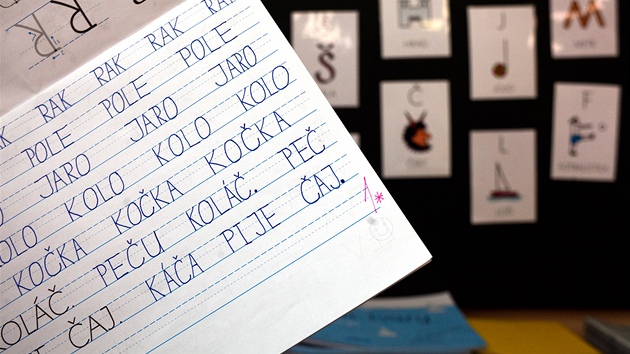 RAK RAK RAK
POLE POLE POLE
JARO JARO JARO
KOLO KOLO KOLO
KOČKA KOČKA KOČKA
KOLÁČ. PEČU KOLÁČ. PEČ
ČAJ. KÁČA PIJE ČAJ.
1*
R
Š
J
Č
F
L